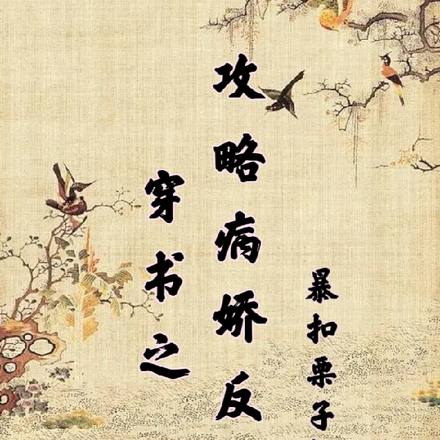 穿书之
攻略病娇反
暴扣栗子